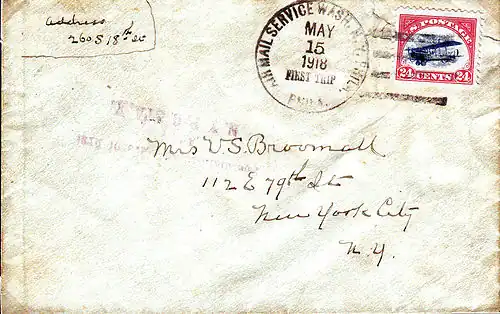 address
260 S 18th St
AIR MAIL SERVICE WASH. N.Y. PHILA.
MAY
15
1918
FIRST TRIP
PHILA.
U.S. POSTAGE
24 CENTS 24
Mrs V.S. Broomall
112 E 79th St
New York City
N.Y.